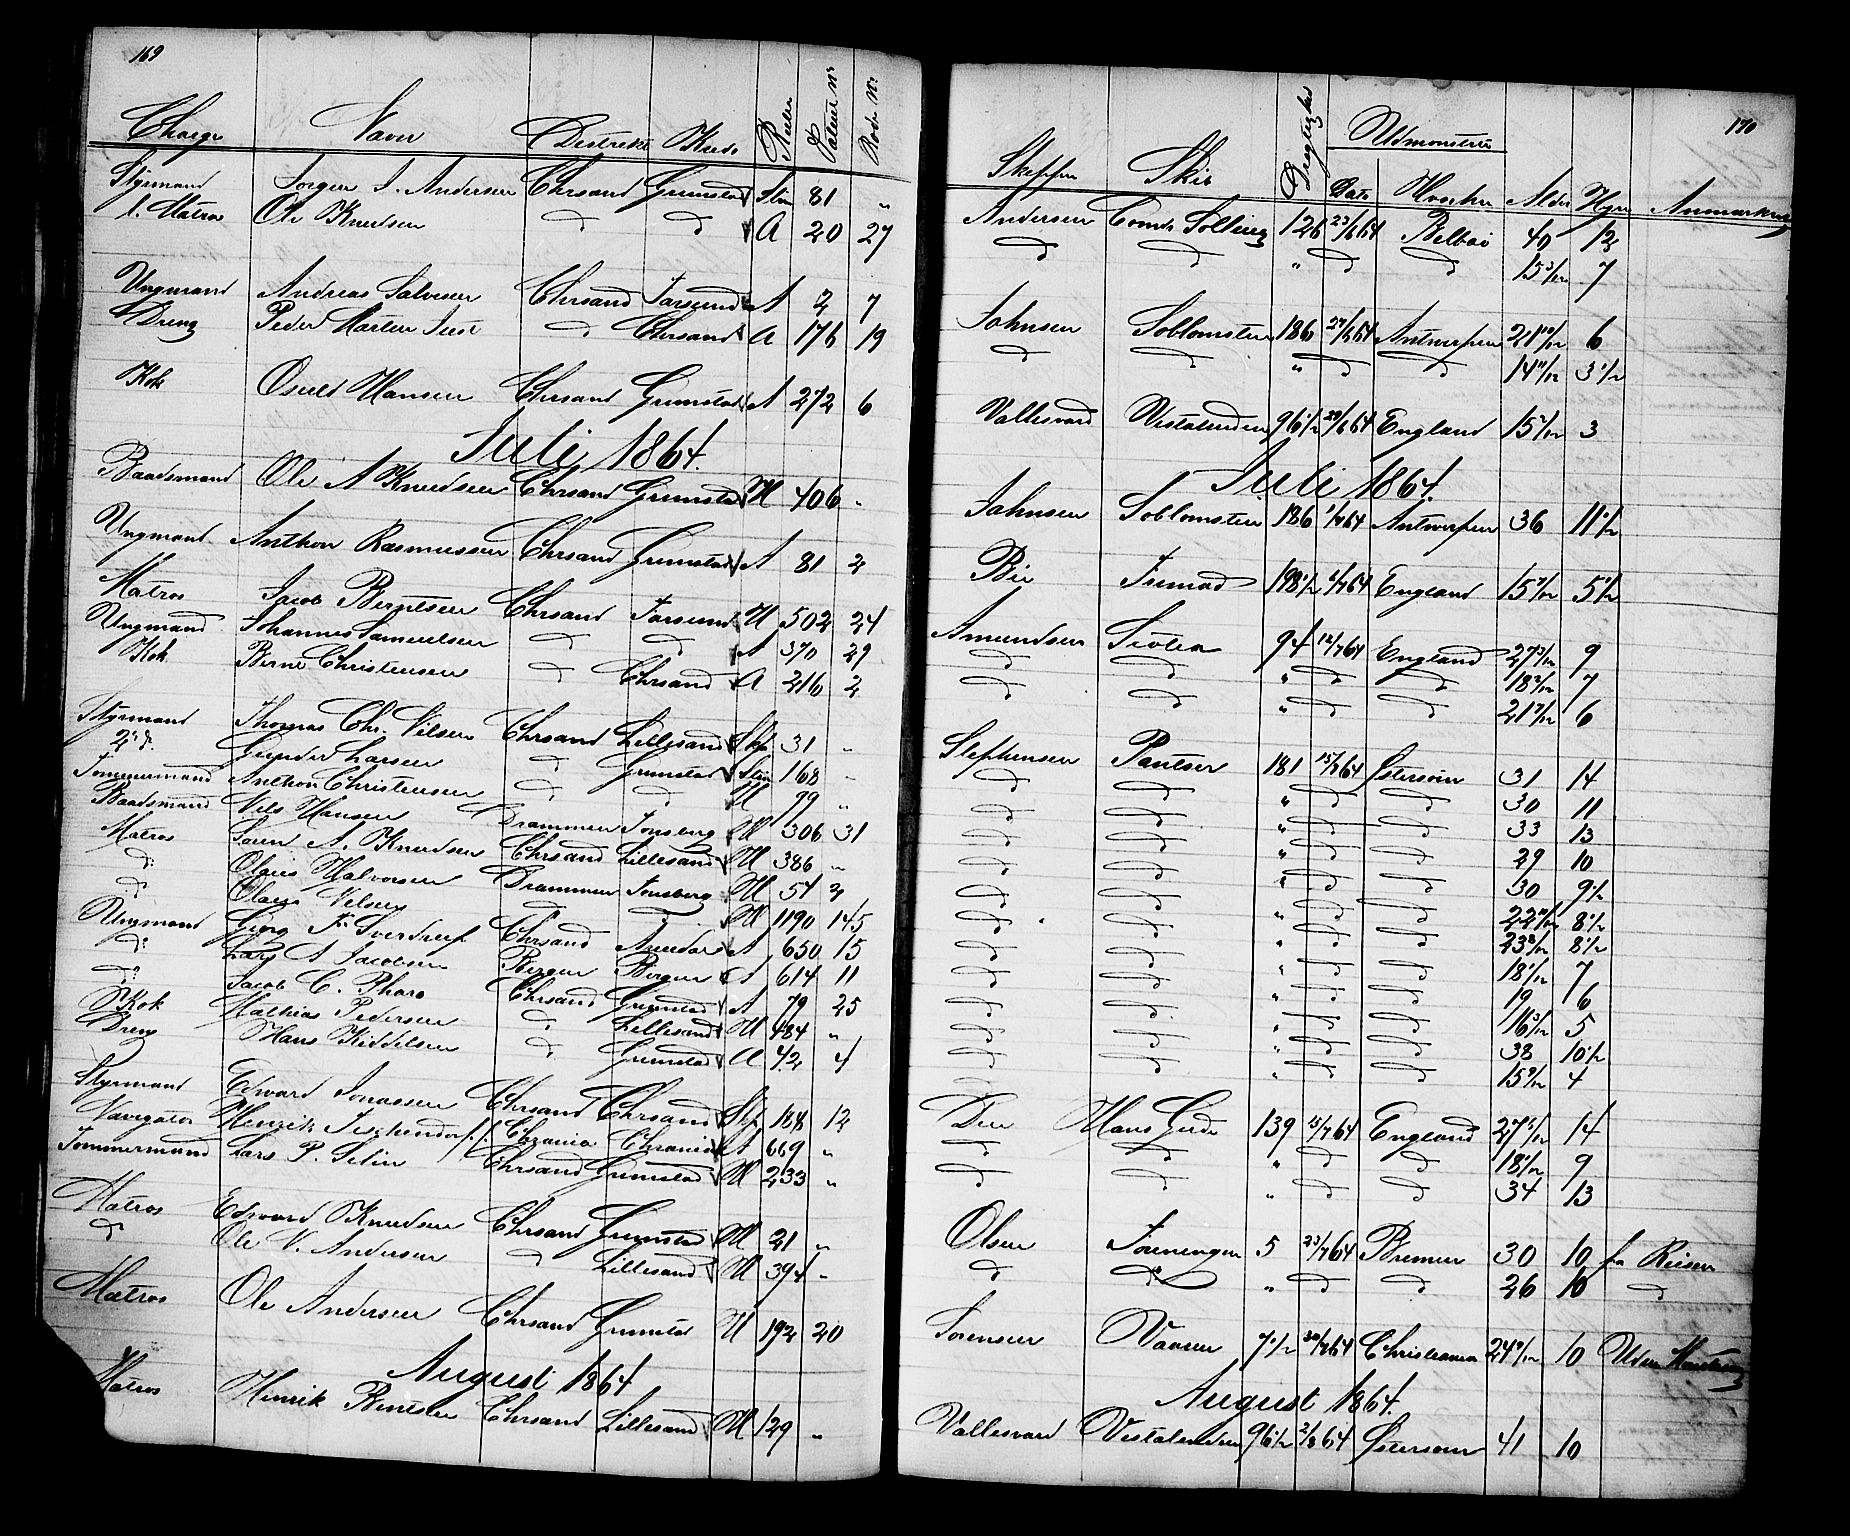 169
Charge Navn Distrikt Kreds Rulle Patent No Rode No
Styrmand Jørgen J. Andersen Chrsand Grimstad 81 "
l. Matros Ole Knudsen d d A 20 27
Ungmand Andreas Salvesen Chrsand Farsund A 2 7
Dreng Peder Martin d Chrsand A 176 19
Kok Osuld Hansen Chrsand Grimstad A 272 6
Juli 1864.
Baadsmand Ole A Knudsen Chrsand Grimstad H 406 "
Ungmand Anthon Rasmussen Chrsand Grimstad A 81 2
Matros Jacob Berntsen Chrsand Farsund H 502 24
Ungmand Johannes Samuelsen d d A 370 29
Kok Berne Christensen d Chrsand A 216 2
Styrmand Thomas Chr. Nilsen Chrsand Lillesand Skp 31 "
2d d: Gunder Larsen d Grimstad 168 "
Tømmermand Anthon Christensen d d H 99 "
Baadsmand Nils Hansen Drammen Tønsberg H 306 31
Matros Søren A. Knudsen Chrsand Lillesand H 386 "
d: Olaus Halvorsen Drammen Tønsberg H 54 3
d: Olaus Nilsen d d H 1190 145
Ungmand Georg Fr Sverdrup Chrsand Arendal A 650 15
d: Lars A Jacobsen Bergen Bergen A 614 11
d: Jacob C. Pharo Chrsand Grimstad A 79 25
Kok Mathias Pedersen d Lillesand H 484 "
Dreng Hans Kiddelsen d Grimstad A 42 4
Styrmand Edvard Jonassen Chrsand Chrsand Skp 184 12
Navigatør Henrik Tischendorf Chrania Chrania A 669 "
Tømmermand Lars P. Chrsand Grimstad H 233 "
Matros Edvard Knudsen Chrsand Grimstad H 21 "
d Ole N. Andersen d Lillesand H 394 "
Matros Ole Andersen Chrsand Grimstad H 192 20
August 1864
Matros Henrik Berntsen Chrsand Lillesand H 129 "
170
Skipper Skib Drægtighed Udmønstret
Dato Hvorhen Alder Hyre Anmærkning
Andersen 126 23/6 64 40 12
d d " d d 15 3/12 7
Johnsen Soblomsten 186 27/6 64 Antwerpen 21 10/12 6
d d " d d 14 11/12 3 1/2
Vallesverd Vestalinden 96 1/2 29/6 64 England 15 7/12 3
Juli 1864.
Johnsen Soblomsten 186 1/7 64 Antwerpen 36 11 1/2
Bie Fremad 198 1/2 6/7 64 England 15 9/12 5 1/2
Amundsen 94 12/7 64 England 27 3/12 9
d d " d d 18 2/12 7
d d " d d 21 7/12 6
Stephensen 181 13/7 64 Østersøen 31 14
d d " d d 30 11
d d " d d 33 13
d d " d d 29 10
d d " d d 30 9 1/2
d d " d d 22 11/12 8 1/2
d d " d d 23 8/12 8 1/2
d d " d d 18 1/12 7
d d " d d 19 6
d d " d d 16 3/12 5
d d " d d 38 10 1/2
d d " d d 15 9/12 4
Hans Gude 139 15/7 64 England 27 5/12 14
d d " d d 18 1/12 9
d d " d d 34 13
Olsen Foreningen 5 23/7 64 Bremen 30 10 fra Reisen
d d " d d 26 10 d
Sørensen 7 1/2 30/7 64 Christiania 24 9/12 10 Uden Mønstring
August 1864.
Vallesverd Vestalinden 96 1/2 2/8 64 Østersøen 41 10